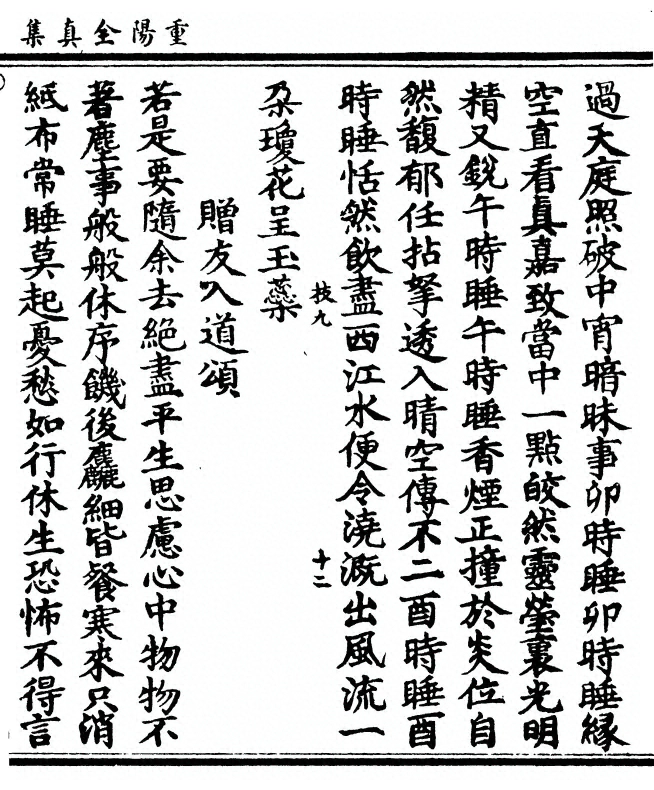 重陽全真集
過天庭照破中宵暗昧事卯時睡卯時睡緣
空直看真嘉致當中一點皎然靈瑩裏光明
精又銳午時睡午時睡香煙正撞於炎位自
然馥郁任拈拏透入晴空傳不二酉時睡酉
時睡恬然飲盡西江水便令澆溉出風流一
枝九
十二
朶瓊花呈玉蘂
贈友入道頌
若是要隨余去絕盡平生思慮心中物物不
著塵事般般休序饑後麤細皆餐寒來只消
紙布常睡莫起憂愁如行休生恐怖不得言